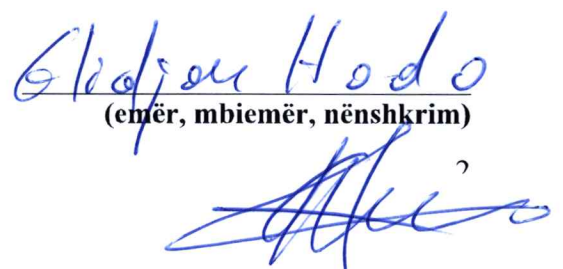 Glidjon Hodo
(emër, mbiemër, nënshkrim)